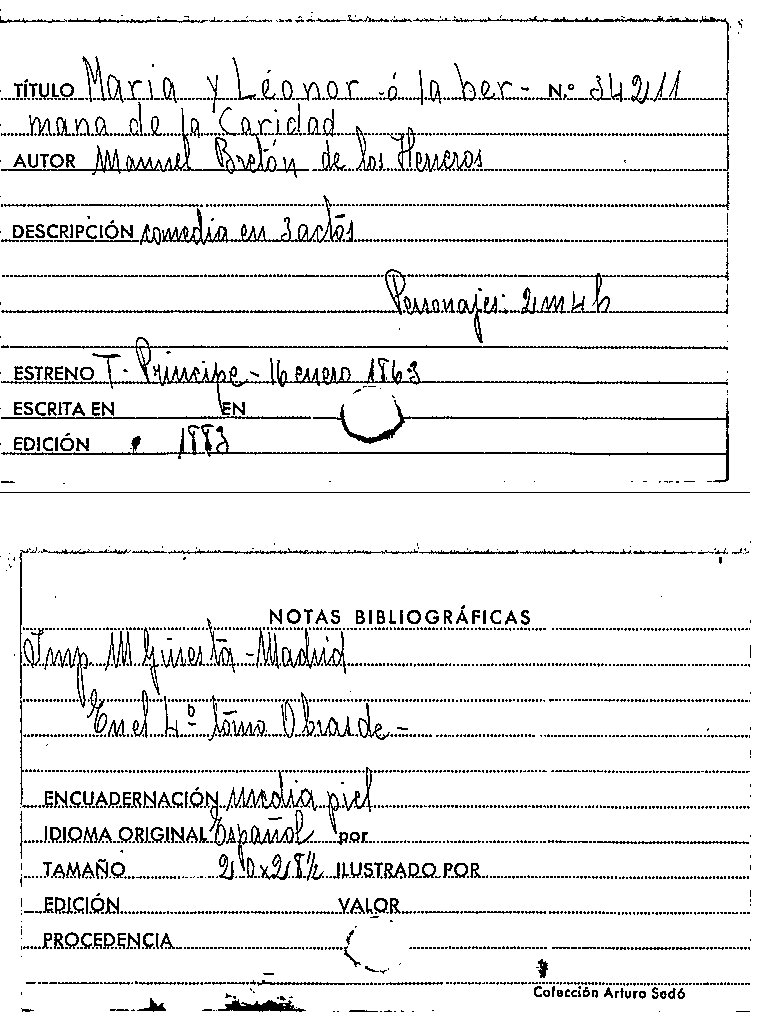 TÍTULO Maria y Léonor -ó la her- N.º 34211
mana de la Caridad
AUTOR Manuel Bretón de los Herreros
DESCRIPCIÓN comedia en 3 actos
Personajes: 2 m 4 h
ESTRENO T. Principe - 16 enero 1863
ESCRITA EN EN
EDICIÓN 1883
NOTAS BIBLIOGRÁFICAS
Imp. M Ginesta - Madrid
En el 4º tomo Obras de -
ENCUADERNACIÓN media piel
IDIOMA ORIGINAL Español por
TAMAÑO 20x28½ ILUSTRADO POR
EDICIÓN VALOR
PROCEDENCIA
Colección Arturo Sedó